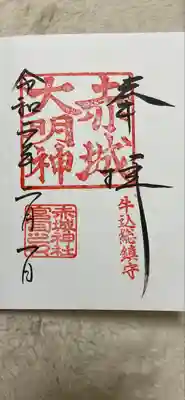 奉拝
牛込総鎮守
赤城
大明神
赤城神社
令和二年一月一日